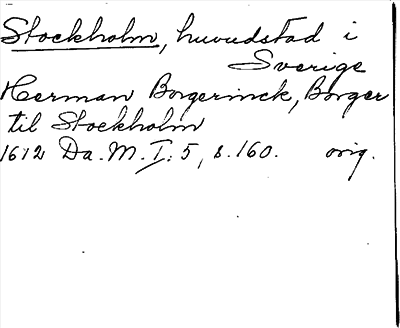 Stockholm, huvudstad i
Sverige
Herman Borgerinck, Borger
til Stockholm
1612 Da. M. I. 5, s. 160. orig.